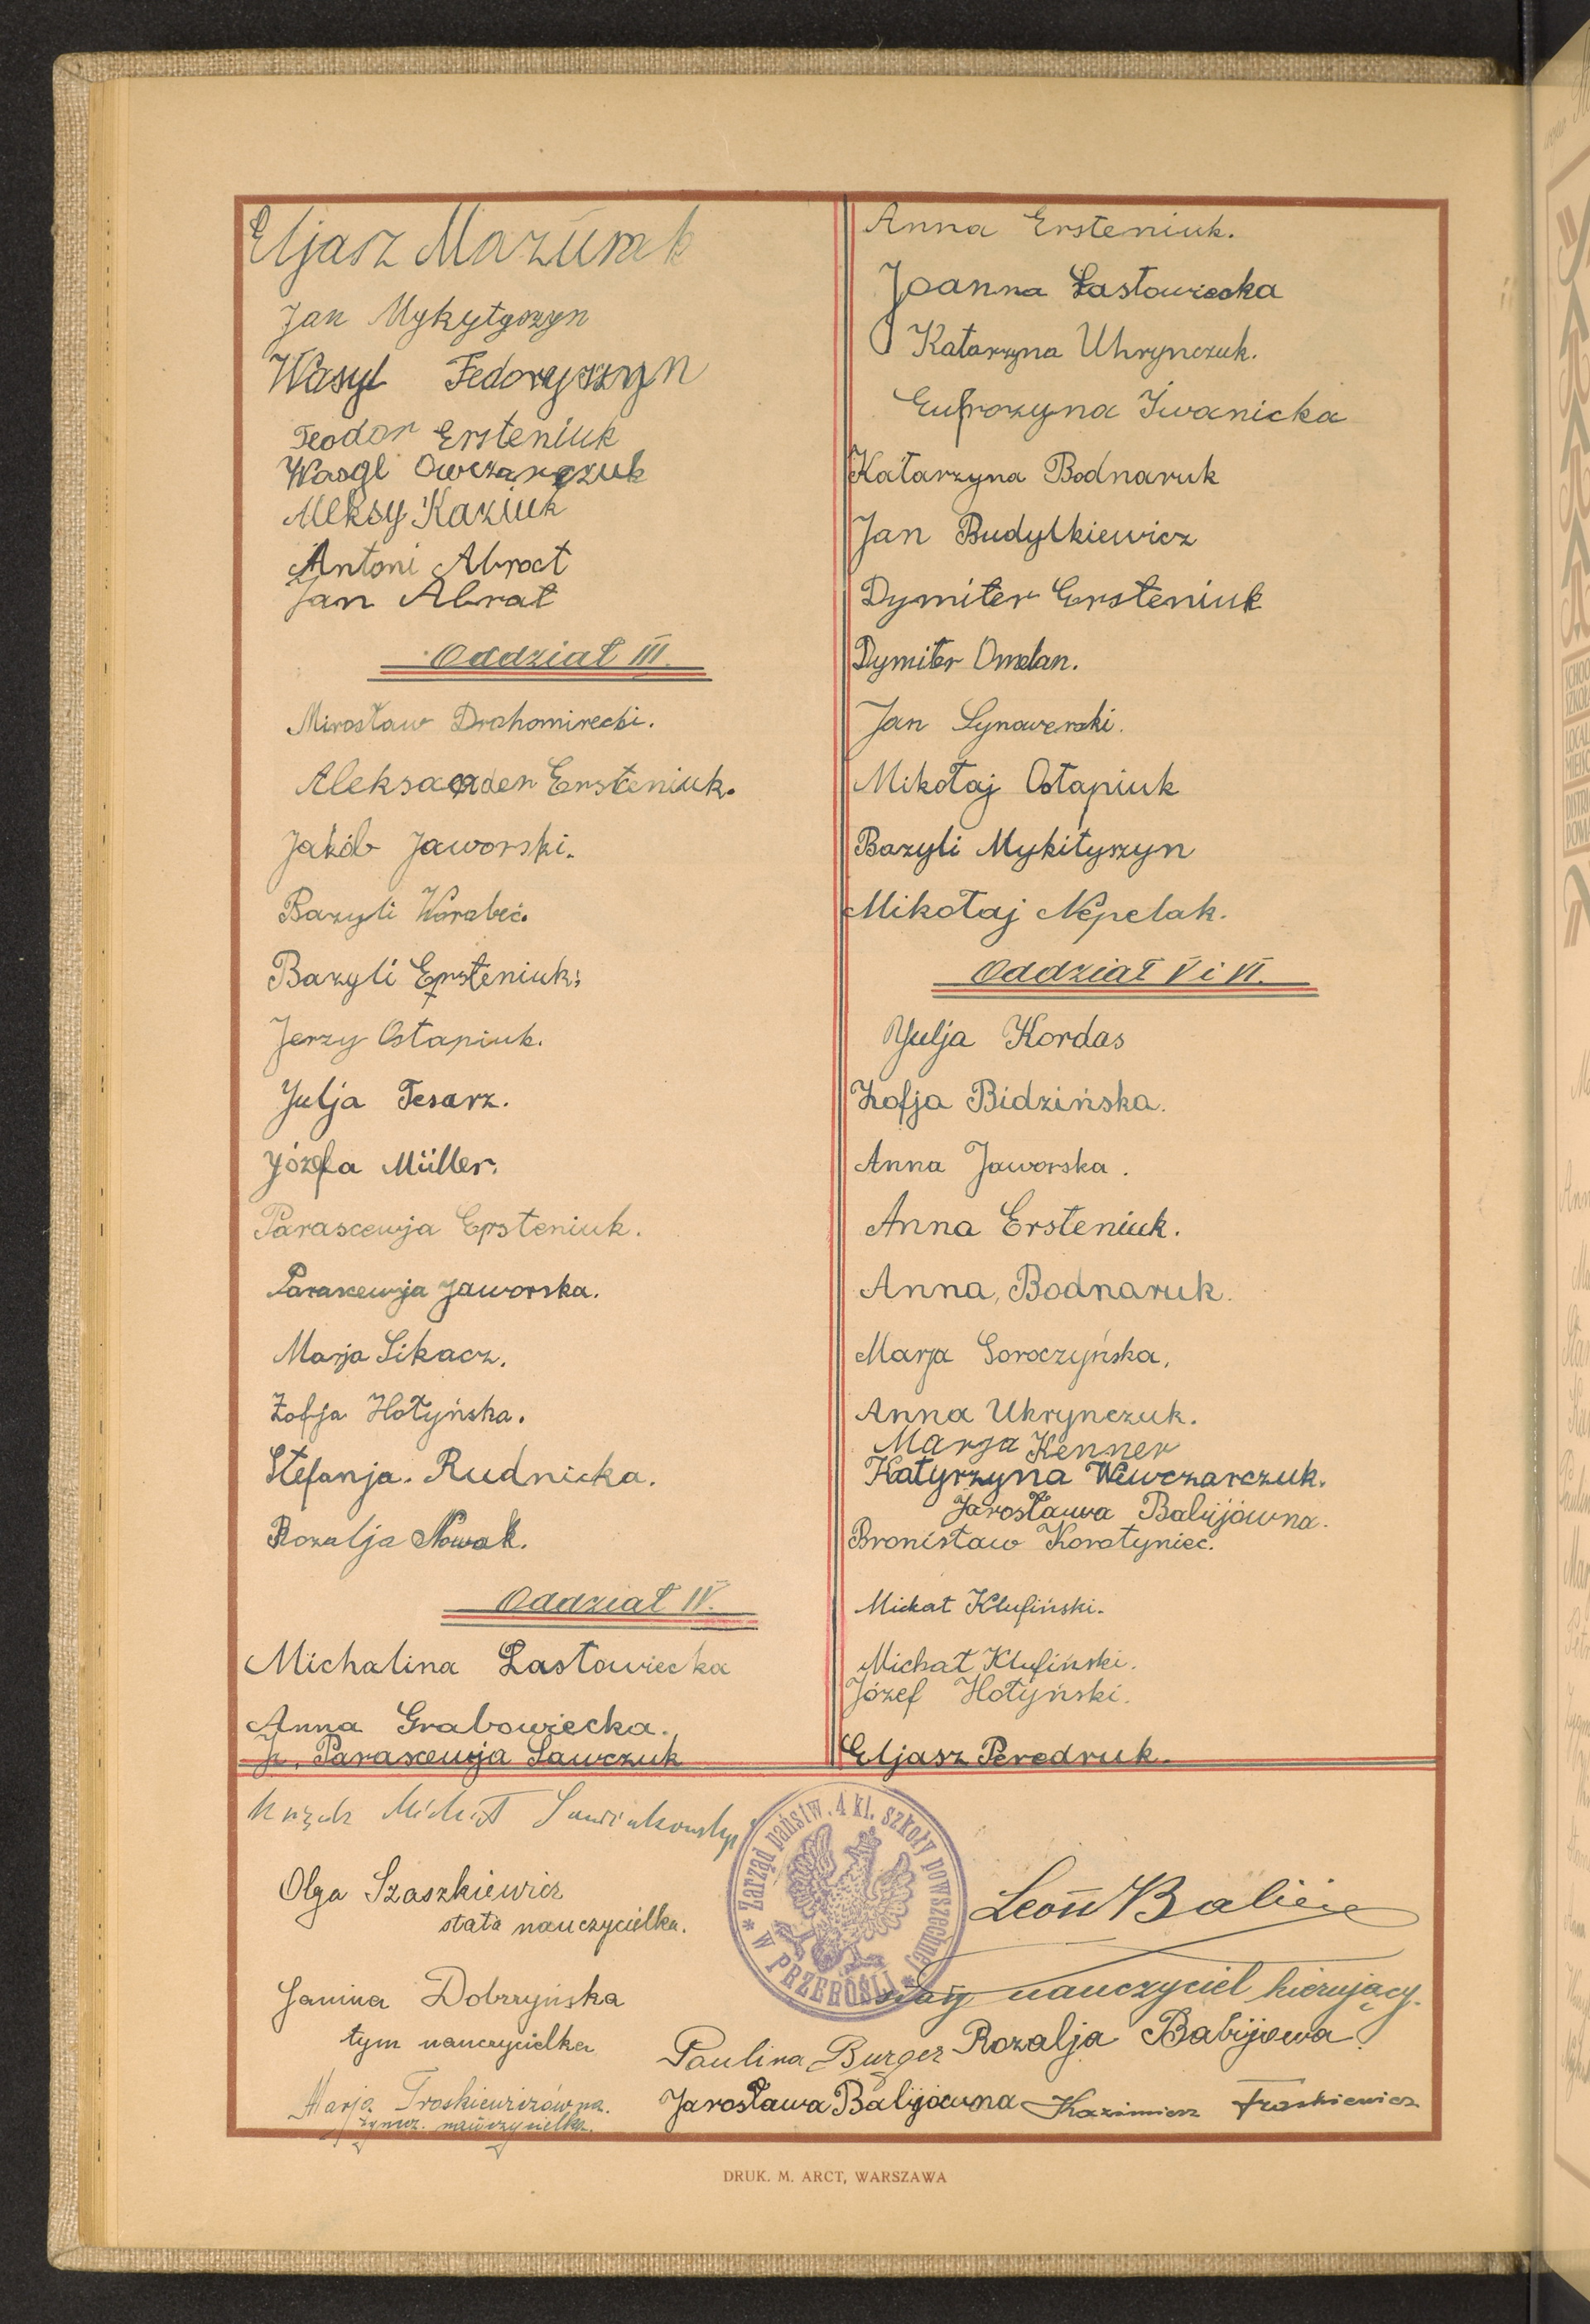 Eljasz Mazurek
Jan Mykytyszyn
Wasyl Fedoryszyn
Teodor Ersteniuk
Wasyl Owczarczuk
Aleksy Kaziuk
Antoni Abrat
Jan Abrat
Oddział III.
Mirosław Drohomirecki.
Aleksander Ersteniuk.
Jakób Jaworski.
Bazyli Worobec.
Bazyli Ersteniuk.
Jerzy Ostapiuk.
Julja Tesarz.
Józefa Müller.
Parascewja Ersteniuk.
Parascewja Jaworska.
Marja Sikacz.
Zofja Hołyńska.
Stefanja Rudnicka.
Rozalja Nowak.
Oddział IV.
Michalina Łastowiecka
Anna Grabowiecka.
Parascewja Sawczuk
Anna Ersteniuk.
Joanna Łastowiecka
Katarzyna Uhrynczuk.
Eufrozyna Iwanicka
Katarzyna Bodnaruk
Jan Budylkiewicz
Dymiter Ersteniuk
Dymiter Omelan.
Jan Synowerski.
Mikołaj Ostapiuk
Bazyli Mykityszyn
Mikołaj Nepelak.
Oddział V i VI.
Julja Kordas
Zofja Bidzińska.
Anna Jaworska.
Anna Ersteniuk.
Anna Bodnaruk.
Marja Soroczyńska.
Anna Uhrynczuk.
Marja Kenner
Katyrzyna Wewczarczuk.
Jarosława Balijówna.
Bronisław Korotyniec.
Michał Klufiński.
Michał Klufiński.
Józef Hołyński.
Eljasz Peredruk.
Ksiądz Michał
Olga Szaszkiewicz
stała nauczycielka.
Janina Dobrzyńska
tym nauczycielka
Marja Troskiewiczówna.
tymcz. nauczycielka.
* Zarząd państw. 4 kl. szkoły powszechnej * W PRZEROŚLI
Leon Balicki
stały nauczyciel kierujący.
Paulina Burger Rozalja Balijowa
Jarosława Balijówna Kazimierz Troskiewicz
DRUK. M. ARCT, WARSZAWA